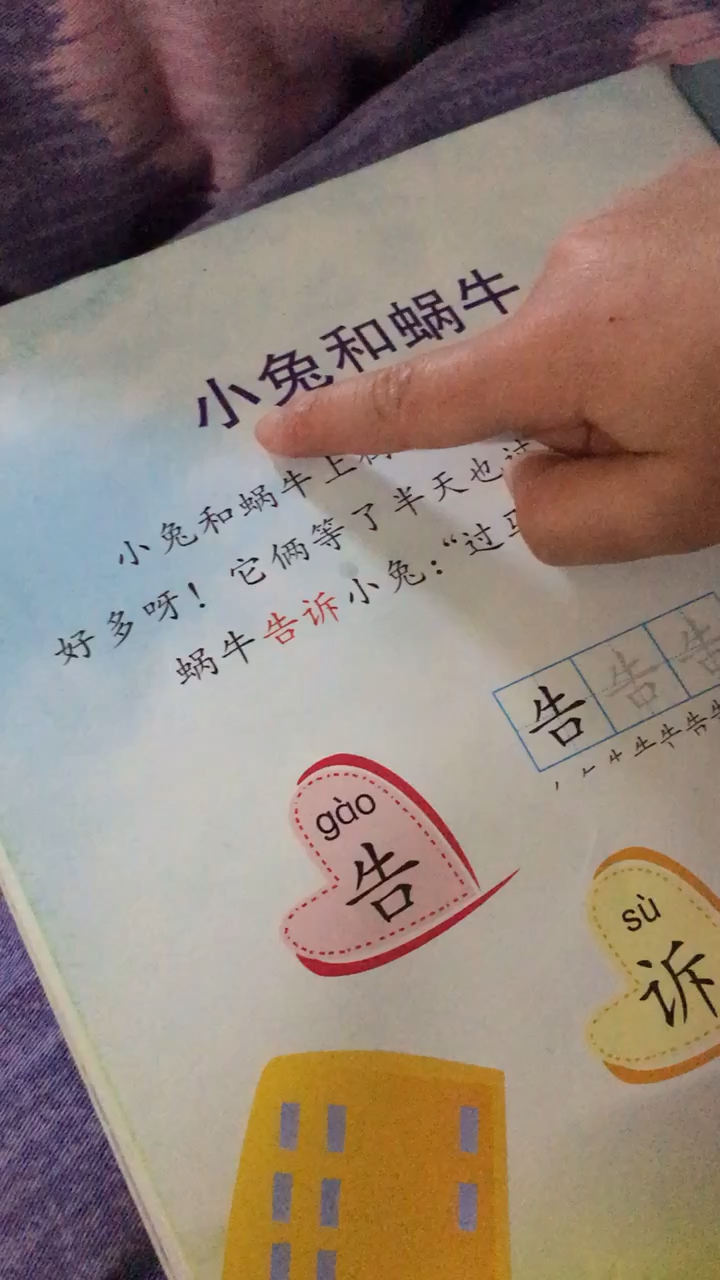 小兔和蜗牛
小兔和蜗牛上
它俩等了半天也过
好多呀！
蜗牛告诉小兔：“过马
告告告
gào
告
sù
诉